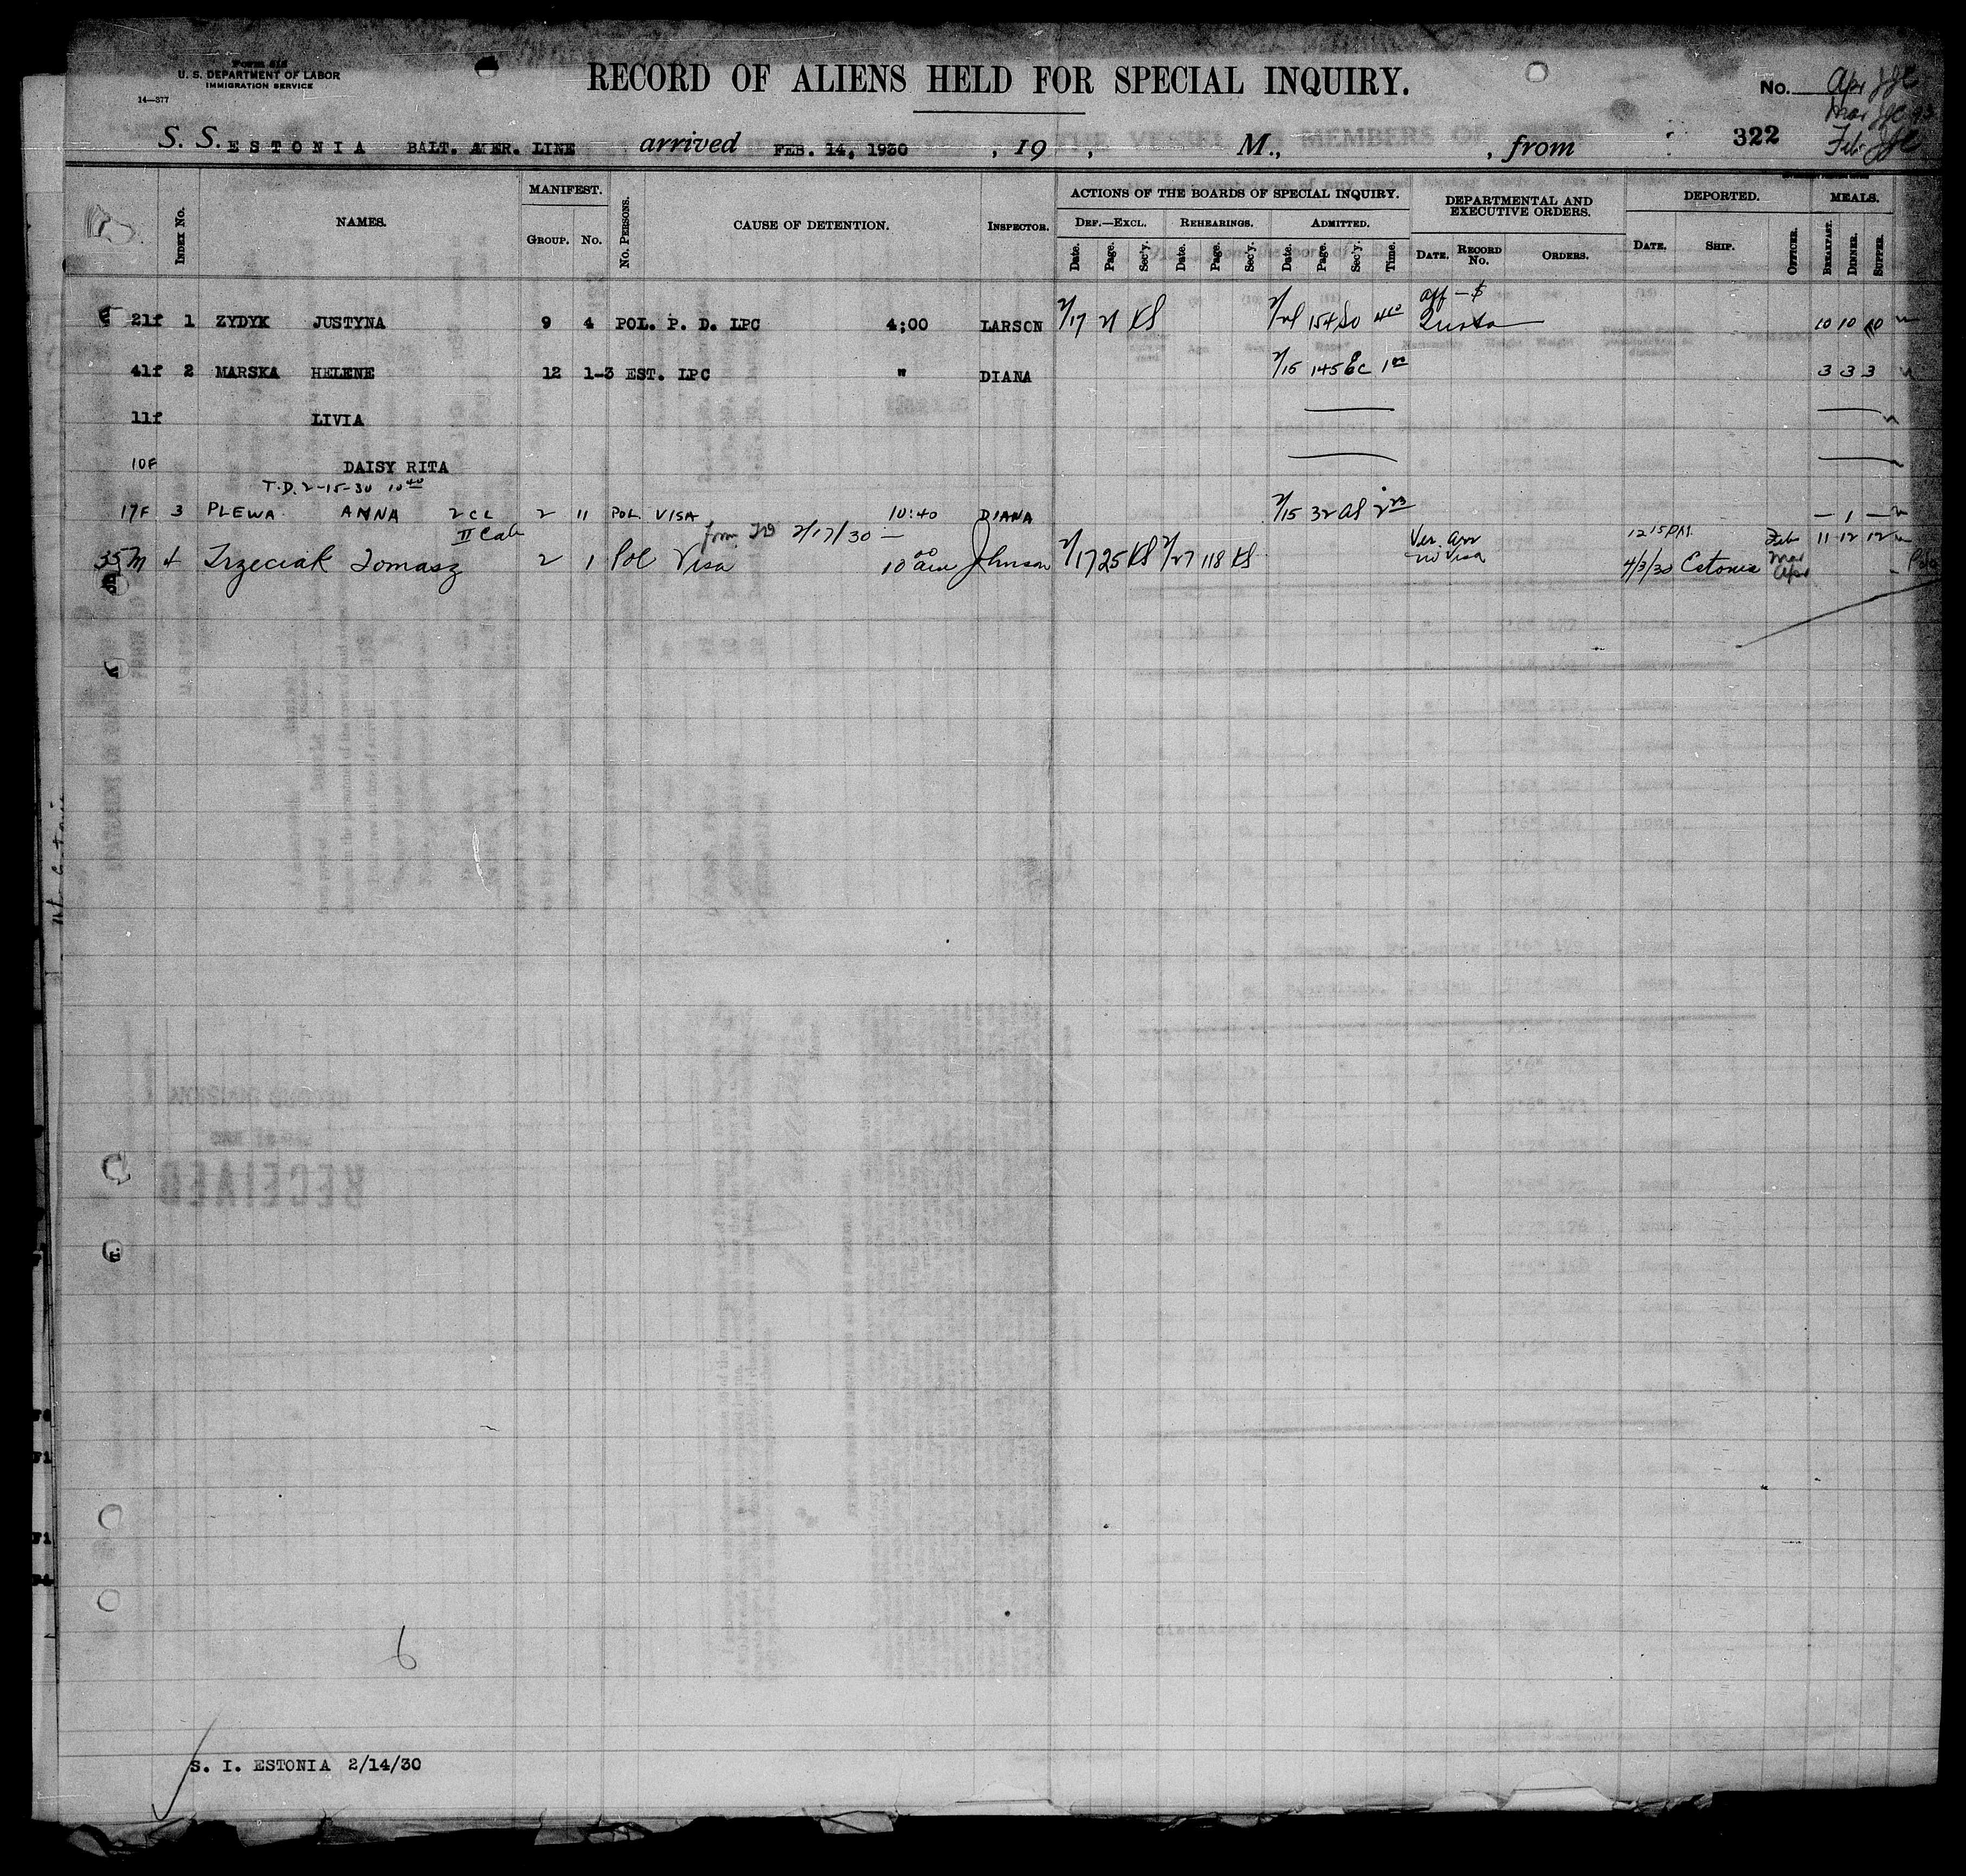 Form 618
U. S. DEPARTMENT OF LABOR
IMMIGRATION SERVICE
14—577
RECORD OF ALIENS HELD FOR SPECIAL INQUIRY.
No. Apr JJC
Mar JJC
322 Feb JJC
S. S. ESTONIA BALT. AMER. LINE arrived FEB. 14, 1930 , 19 , M., , from
INDEX No. NAMES. MANIFEST. GROUP. No. No. PERSONS. CAUSE OF DETENTION. INSPECTOR. ACTIONS OF THE BOARDS OF SPECIAL INQUIRY. DEF.—EXCL. REHEARINGS. ADMITTED. DEPARTMENTAL AND EXECUTIVE ORDERS. DEPORTED. MEALS.
Date. Page. Sec'y. Date. Page. Sec'y. Date. Page. Sec'y. Time. DATE. RECORD No. ORDERS. DATE. SHIP. OFFICER. BREAKFAST. DINNER. SUPPER.
aff — $
21f 1 ZYDYK JUSTYNA 9 4 POL. P. D. LPC 4;00 LARSON 2/17 21 KS 154 10 10 10
41f 2 MARSKA HELENE 12 1-3 EST. LPC " DIANA 2/15 145 EC 1 00 3 3 3
11f LIVIA
10F DAISY RITA
T.D. 2-15-30 10 40
17F 3 PLEWA ANNA 2 CL 2 11 POL. VISA 10:40 DIANA 2/15 32 — 1 —
II Cab from TD 2/17/30 — Ver. arr 12 15 P.M. Feb 11 12 12
35 M 4 Trzeciak Tomasz 2 1 Pol Visa 10 00 am Johnson 2/17 25 KS 2/27 118 KS no visa 4/3/30 Estonia Mar
Apr
6
S. I. ESTONIA 2/14/30